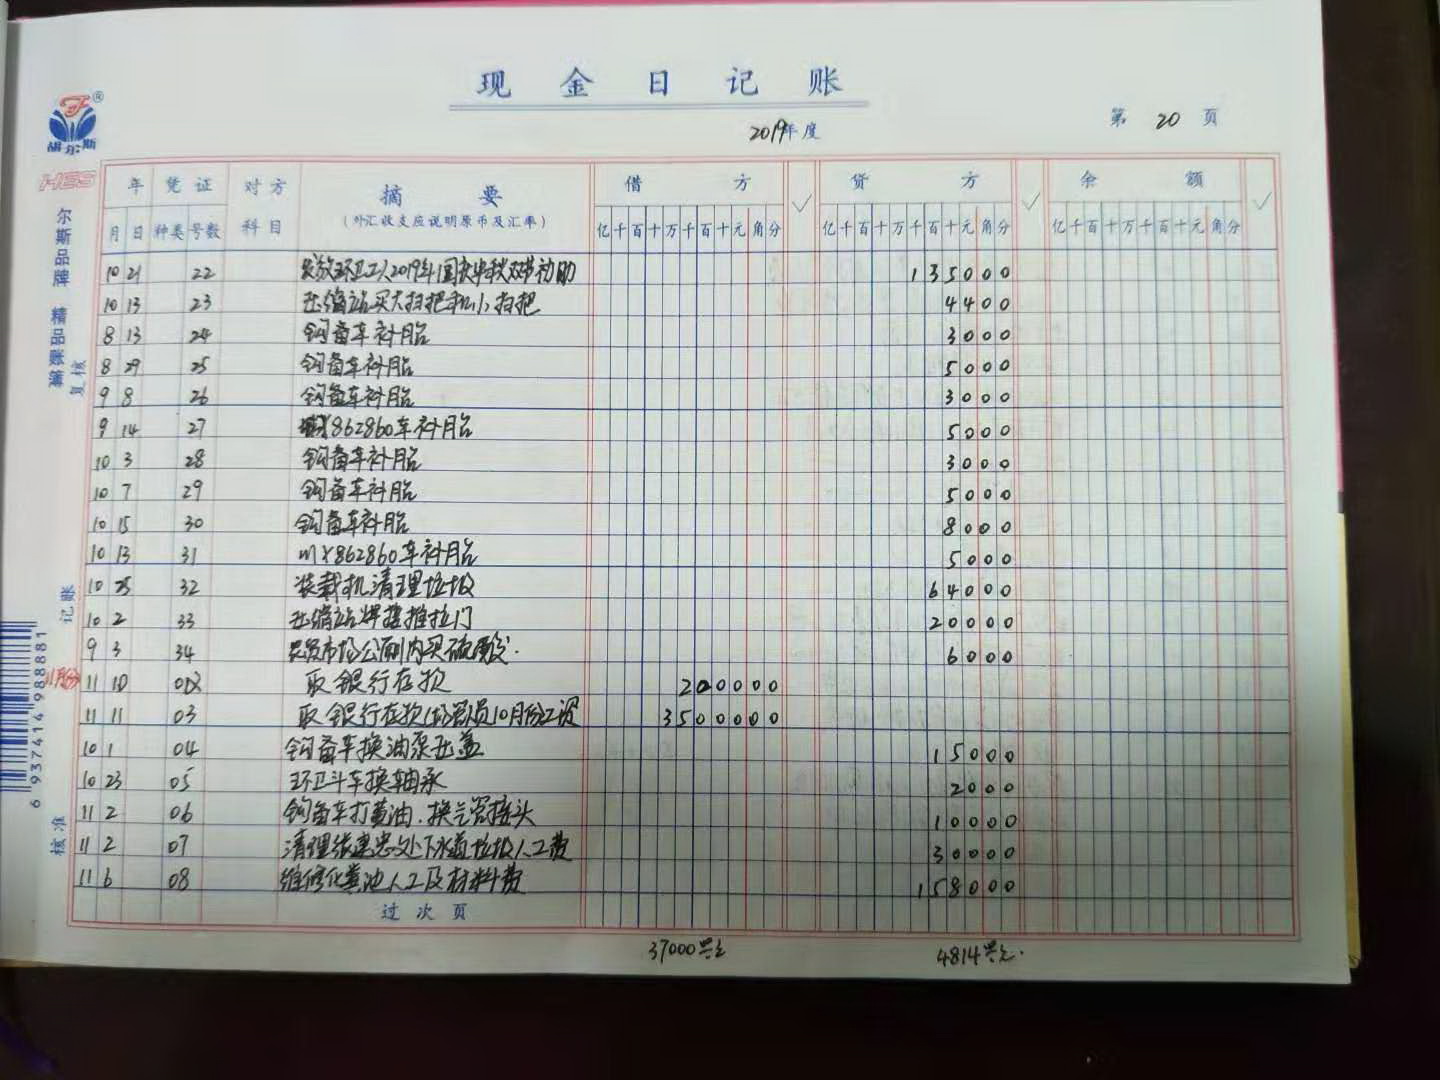 现 金 日 记 账
2019年度
第 20 页
胡尔斯
HES
尔斯品牌 精品策籍
复核
记账
核准
6 937414 988881
11月份
年 凭 证 对 方 摘 要 借 方 贷 方 余 额
月 日 种类 号数 科 目 (外汇收支应说明原币及汇率) 亿千百十万千百十元角分 亿千百十万千百十元角分 亿千百十万千百十元角分
10 21 22 发放环卫工人2019年国庆中秋双节补助 135000
10 13 23 压缩站买大扫把和小扫把 4400
8 13 24 钩备车补胎 3000
8 29 25 钩备车补胎 5000
9 8 26 钩备车补胎 3000
9 14 27 862860车补胎 5000
10 3 28 钩备车补胎 3000
10 7 29 钩备车补胎 5000
10 15 30 钩备车补胎 8000
10 13 31 mY862860车补胎 5000
10 25 32 装载机清理垃圾 64000
10 2 33 压缩站焊接推拉门 20000
9 3 34 农贸市场公厕内买硫酸. 6000
11 10 02 取银行存款 200000
11 11 03 取银行存款(协管员10月份工资 3500000
10 1 04 钩备车换油泵压盖 15000
10 23 05 环卫斗车换轴承 2000
11 2 06 钩备车打黄油.换气管接头 10000
11 2 07 清理张建忠处下水道垃圾人工费 30000
11 6 08 维修化粪池人工及材料费 158000
过 次 页
37000 4814